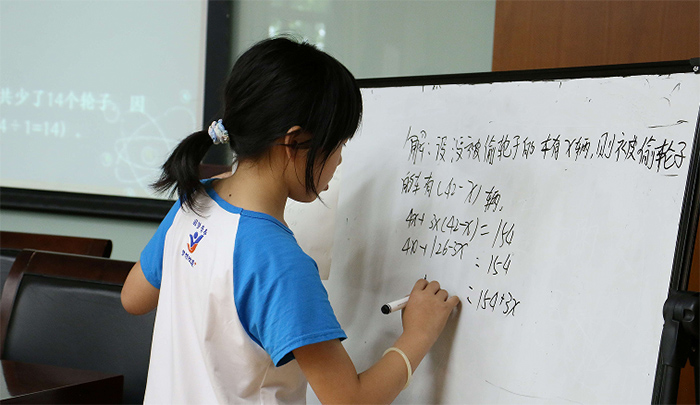 共少了14个轮子，因
4÷1=14)，
解：设没被偷轮子的车有x辆，则被偷轮子
的车有(42-x)辆。
4x+3x(42-x)=154
4x+126-3x=154
=154+3x